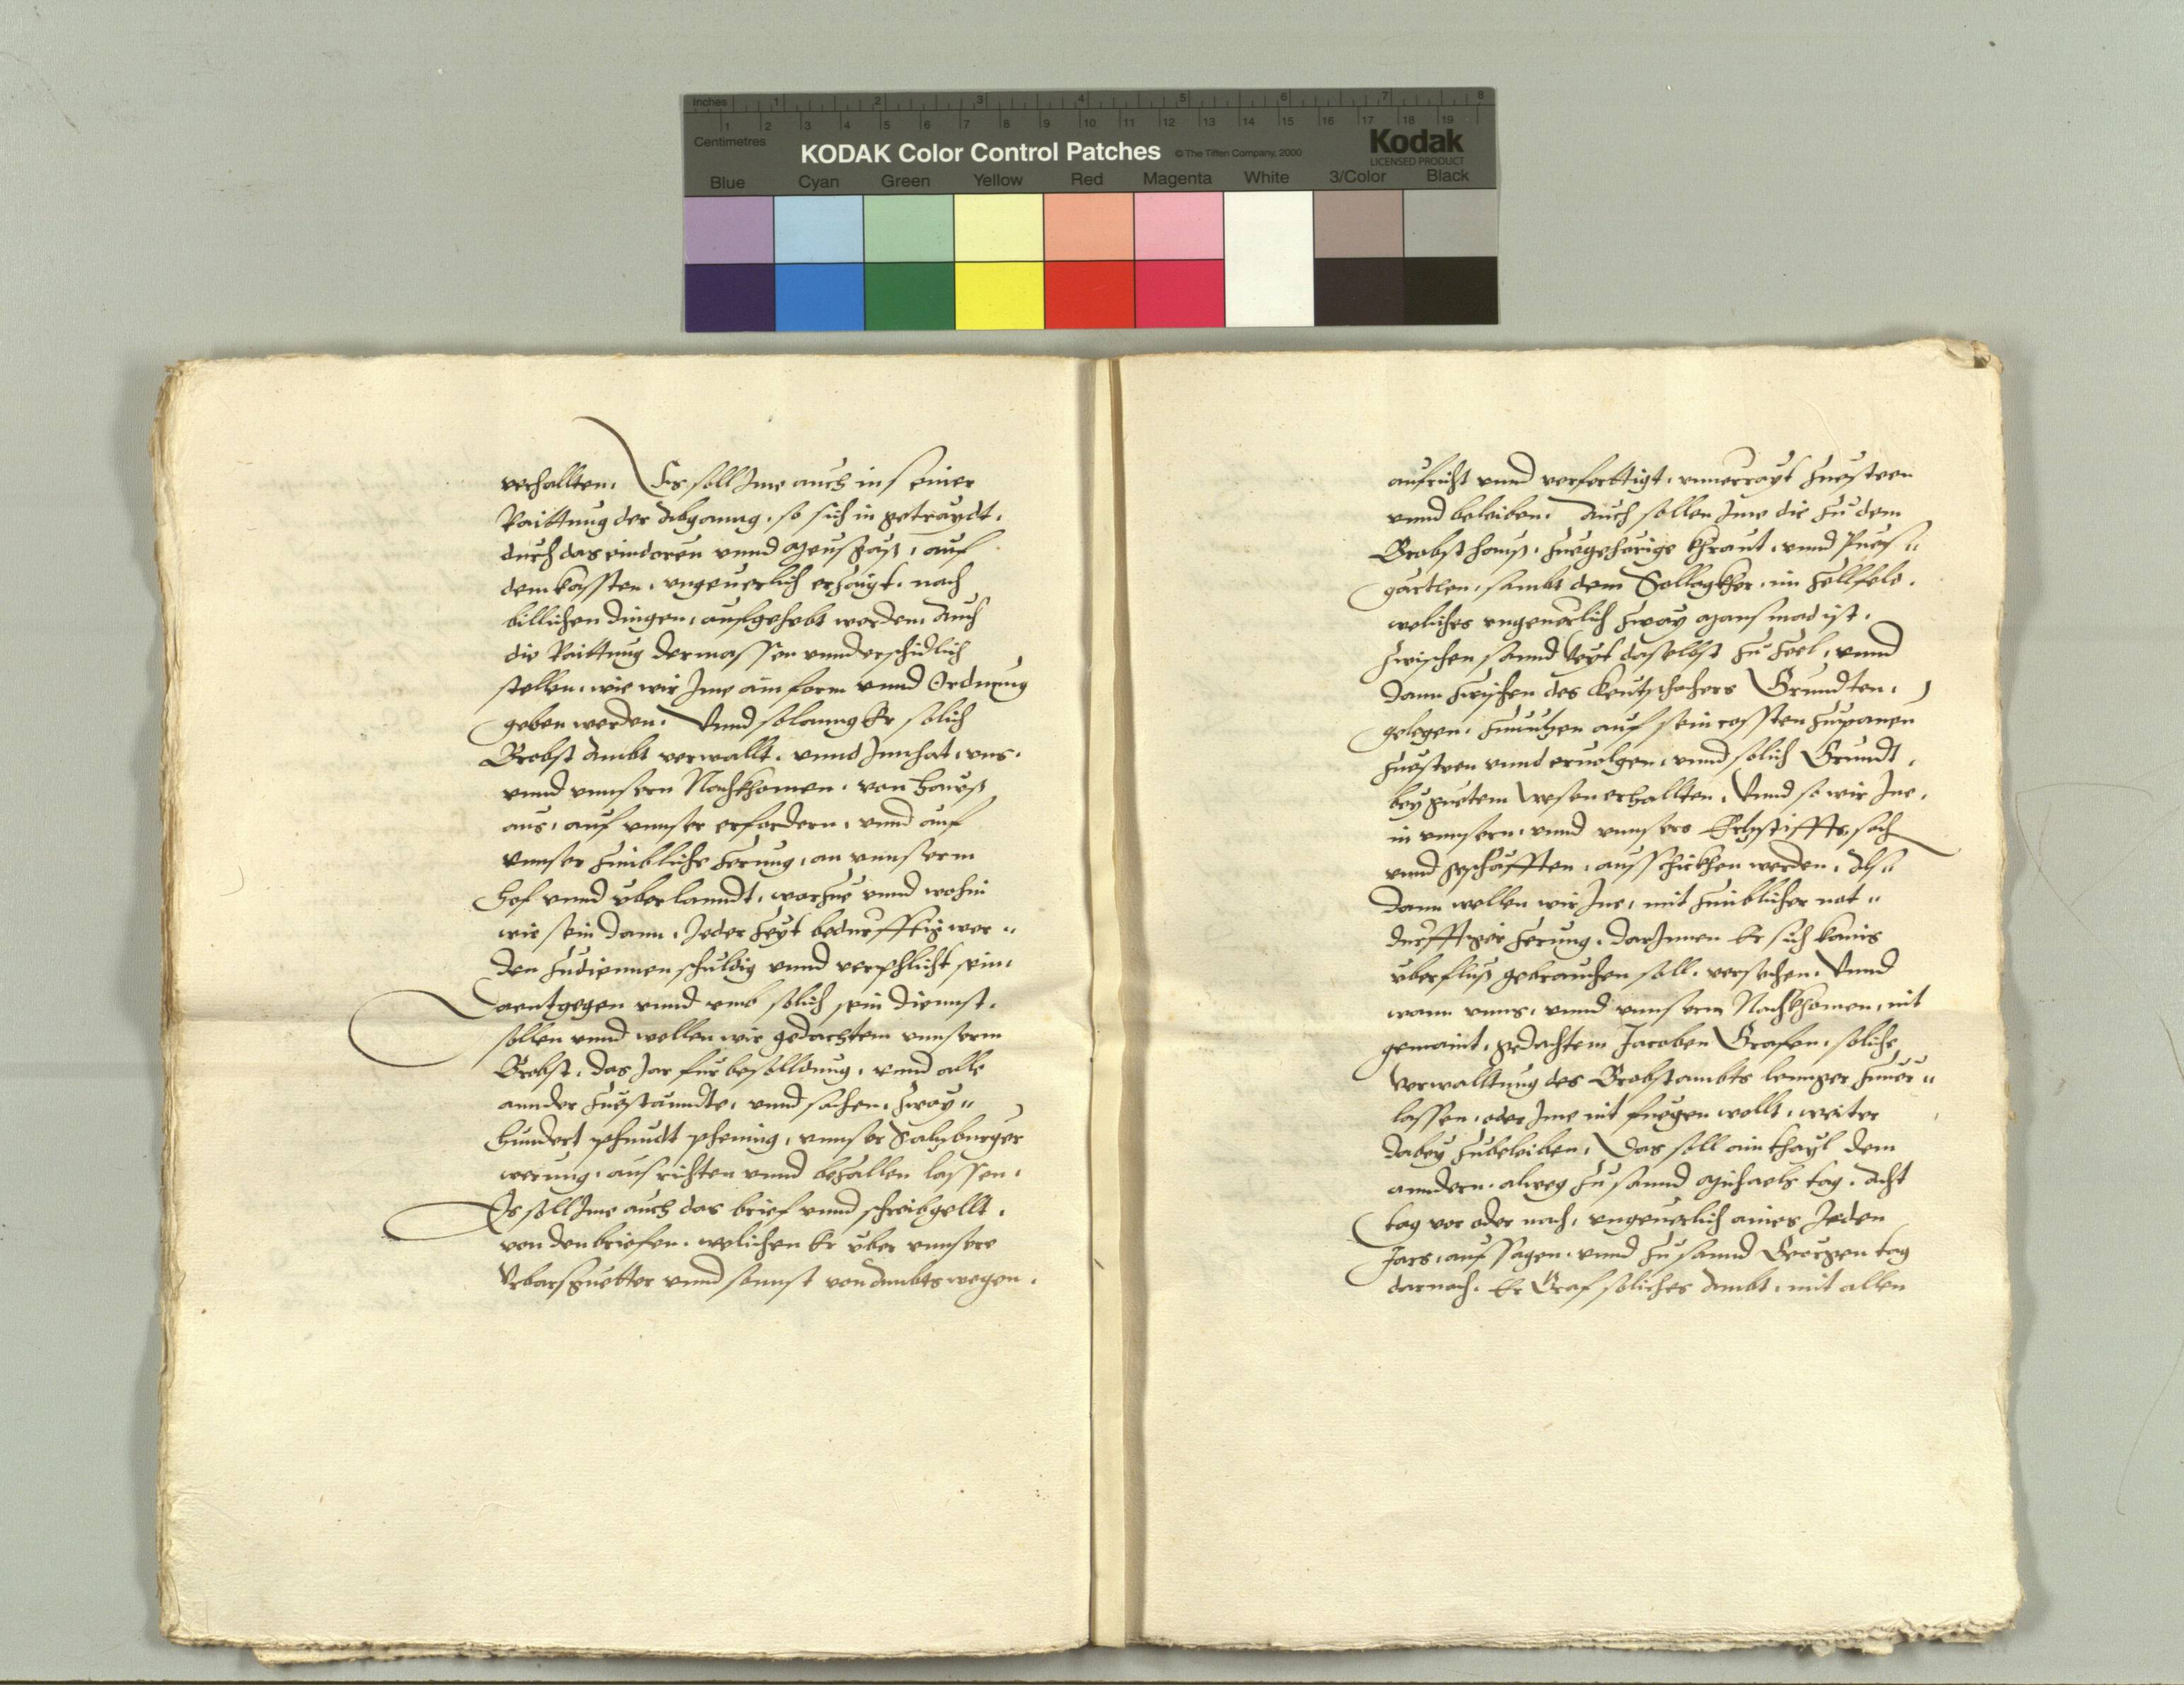 Inches 1 2 3 4 5 6 7 8
1 2 3 4 5 6 7 8 9 10 11 12 13 14 15 16 17 18 19
Centimetres
KODAK Color Control Patches © The Tiffen Company, 2000
Kodak
LICENSED PRODUCT
Blue Cyan Green Yellow Red Magenta White 3/Color Black
verhallten. Es soll Jme auch in seiner
Raittung der Abganng, so sich in getraydt,
durch das einderen vnnd Meusfraß, auf
dem kassten, vngeuerlich erhaigt, nach
billichen dingen, aufgehebt werden. Auch
die Raittung dermassen vnnderschidlich
stellen, wie wir Jme ain form vnnd Ordnung
geben werden. Vnnd solanng Er solich
Brobst Ambt verwallt, vnnd Jnnhat, vns,
vnnd vnnsern Nachkhomen, von Hauss
aus, auf vnnser erfordern, vnnd auf
vnnser zimbliche zerung, an vnnserm
Hof vnnd vberlanndt, warzue vnnd wohin
wir sein dann, Jeder zeyt bedurfftig wer„
den zudiennen schuldig vnnd verphlicht sein.
Daentgegen vnnd vmb solich sein diennst,
sollen vnnd wellen wir gedachtem vnnserm
Brobst, das Jar fur besolldung, vnnd alle
annder zuestanndte, vnnd sachen, zway„
hundert phundt phening, vnnser Salzburger
werung, ausrichten vnnd behallten lassen.
Es soll Jme auch das brief vnnd schreibgellt,
von den briefen, welichen Er vber vnnsere
Vrbarsguetter vnnd sonnst von Ambts wegen,
aufricht vnnd verferttigt, vnuerrayt zuesteen
vnnd beleiben. Auch sollen Jme die zu dem
Brobst hauß, zuegehörige khraut, vnnd Pues„
gärtlen, sambt dem Sollagkher, im Zellfeld,
weliches vngeuerlich zway Mansmad ist,
zwischen sannd Veyt daselbst zu Zeel, vnnd
dann zwischen des Keutschachers Grundten,
gelegen, zunutzen auf sein cossten zupanen
zuesteen vnnd eruolgen, vnnd solich Grundt,
bey guetem Wesen erhallten. Vnnd so wir Jne,
in vnnsern, vnnd vnnsers Ertzstiffts, sach
vnnd geschäfften, ausschickhen werden, Als„
dann wellen wir Jne, mit zimblicher not„
durfftiger zerung, darJnnen Er sich kains
vberfluß gebrauchen soll, versehen. Vnnd
wann vnns, vnnd vnnsern Nachkhomen, nit
gemaint, gedachtem Jacoben Grafen, soliche
verwalltung des Brobstambts lennger zuuer„
lassen, oder Jme nit fuegen wollt, weiter
dabey zubeleiben, Das soll ain thayl dem
anndern, alweg zu sannd Michaels tag, Acht
tag vor oder nach, vngeuerlich aines Jeden
Jars, aufsagen, vnnd zu sannd Georgen tag
darnach, Er Graf soliches Ambt, mit allen